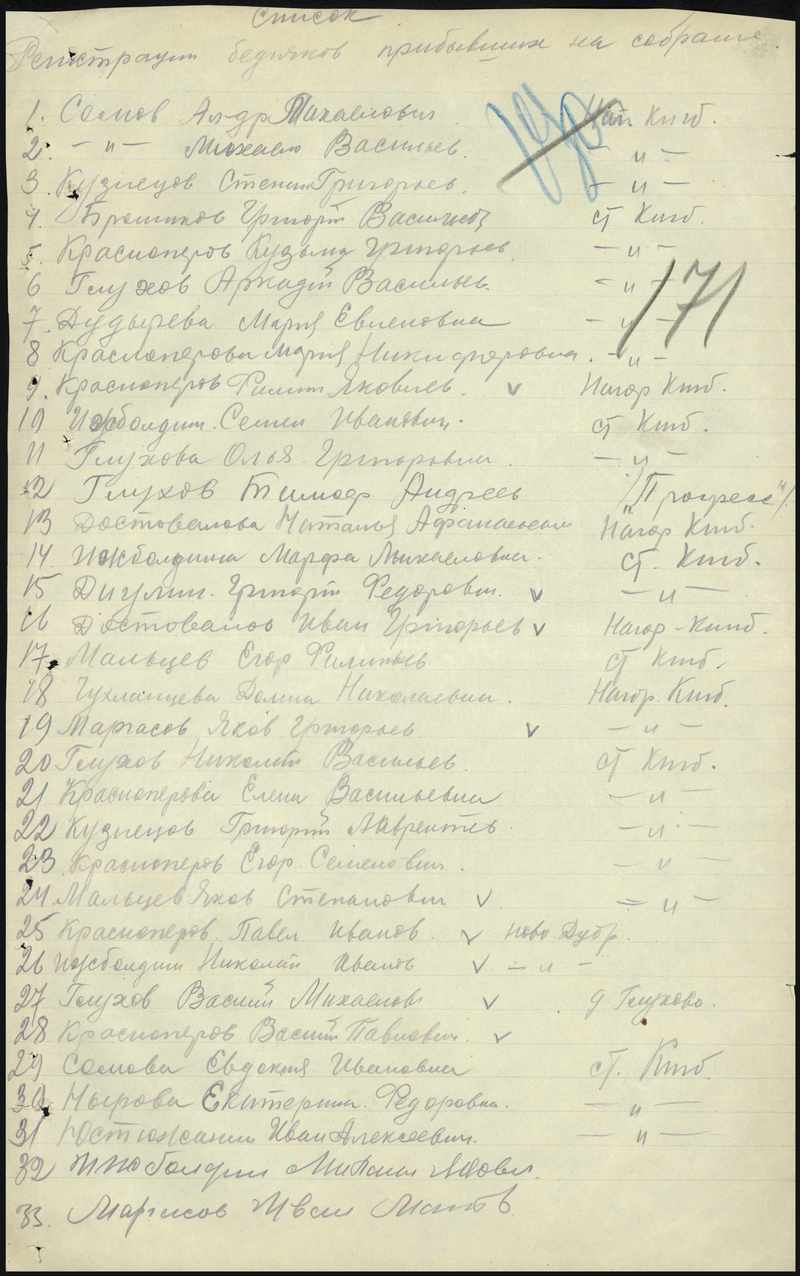 Список
Регистрации бедняков прибывших на собрание.
1. Сомов Ал-др Михаилович
2. — " — Михаил Васильев. — " —
3. Кузнецов Степан Григорьев. — " —
4. Григорий Васильев ст Кишб.
5. Красноперов Кузьма Григорьев. — " —
6 Глухов Аркадий Васильев. — " —
7. Дудырева Мария Евгеновна — " —
171
8 Красноперова Мария Никифоровна. — " —
9. Красноперов Филип Яковлев. v Нагор Кишб.
10 Ижболдин. Семен Иванович. ст Кишб.
11 Глухова Ольга Григоровна. — " —
12 Глухов Тимоф Андреев /"Прогресс"/
13 Достовалова Наталья Афанасьевна Нагор Кишб.
14 Ижболдина Марфа Михаиловна. ст. Кишб.
15 Григорий Федорович. v — " —
16 Достовалов Иван Григорьев v Нагор - Кишб.
17. Мальцев Егор Филипьев ст Кишб.
18 Чухланцева Домна Николаевна. Нагор. Кишб.
19 Маргасов Яков Григорьев v — " —
20 Глухов Николай Васильев. ст Кишб.
21 Красноперова Елена Васильевна — " —
22 Кузнецов Григорий Лаврентьев. — " —
23 Красноперов Егор Семенович. — " —
24 Мальцев Яков Степанович v — " —
25 Красноперов Павел Иванов. v Ново Дубр.
26 Ижболдин Николай Иванов v — " —
27 Глухов Василий Михаилов v д Глухово.
28 Красноперов Василий Павлович. v
29 Сомова Евдокия Ивановна ст. Кишб.
30 Нырова Екатерина Федоровна. — " —
31 Юстюжанин Иван Алексеевич. — " —
32 Ижболдин
33. Маргасов Иван